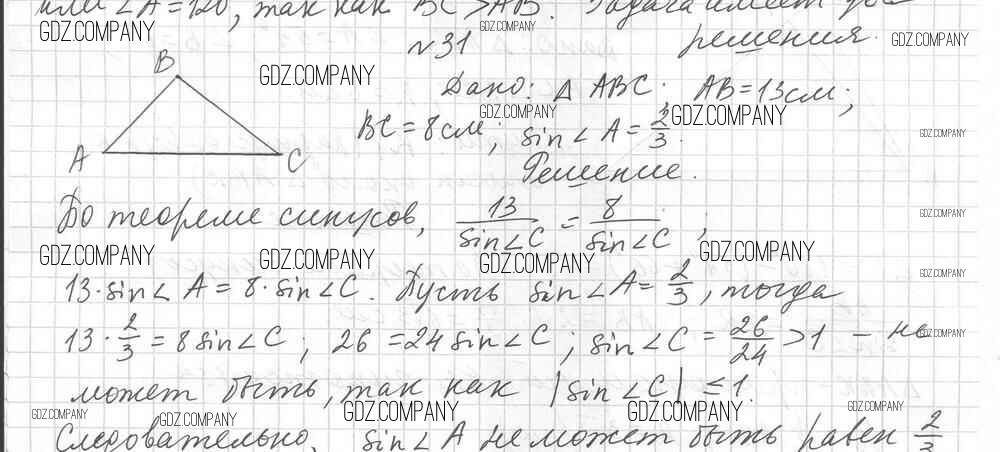 или ∠A = 120, так как BC > AB. Задача имеет два
GDZ.COMPANY GDZ.COMPANY
№31 решения.
B GDZ.COMPANY
Дано: Δ ABC. AB = 13 см;
GDZ.COMPANY GDZ.COMPANY GDZ.COMPANY
BC = 8 см; sin∠A = 2/3.
A C Решение.
По теореме синусов, 13/sin∠C = 8/sin∠C;
GDZ.COMPANY
GDZ.COMPANY GDZ.COMPANY GDZ.COMPANY GDZ.COMPANY GDZ.COMPANY
13·sin∠A = 8·sin∠C. Пусть sin∠A = 2/3, тогда
13·2/3 = 8 sin∠C; 26 = 24 sin∠C; sin∠C = 26/24 > 1 – не
GDZ.COMPANY
может быть, так как |sin∠C| ≤ 1.
GDZ.COMPANY GDZ.COMPANY GDZ.COMPANY GDZ.COMPANY GDZ.COMPANY
Следовательно, sin∠A не может быть равен 2/3